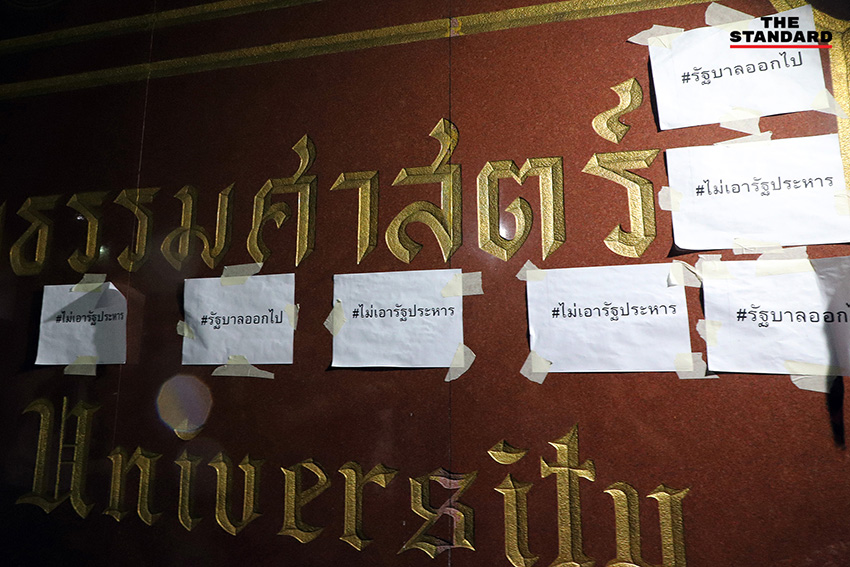 THE
STANDARD
#รัฐบาลออกไป
#ไม่เอารัฐประหาร
ธรรมศาสตร์
#ไม่เอารัฐประหาร
#รัฐบาลออกไป
#ไม่เอารัฐประหาร
#ไม่เอารัฐประหาร
#รัฐบาลออกไ
University